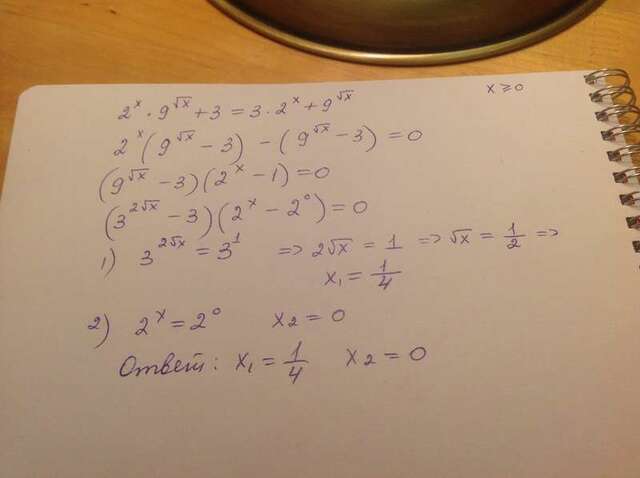 2^x · 9^√x + 3 = 3 · 2^x + 9^√x x ⩾ 0
2^x (9^√x − 3) − (9^√x − 3) = 0
(9^√x − 3)(2^x − 1) = 0
(3^2√x − 3)(2^x − 2^0) = 0
1) 3^2√x = 3^1 => 2√x = 1 => √x = 1/2 =>
x₁ = 1/4
2) 2^x = 2^0 x₂ = 0
Ответ: x₁ = 1/4 x₂ = 0